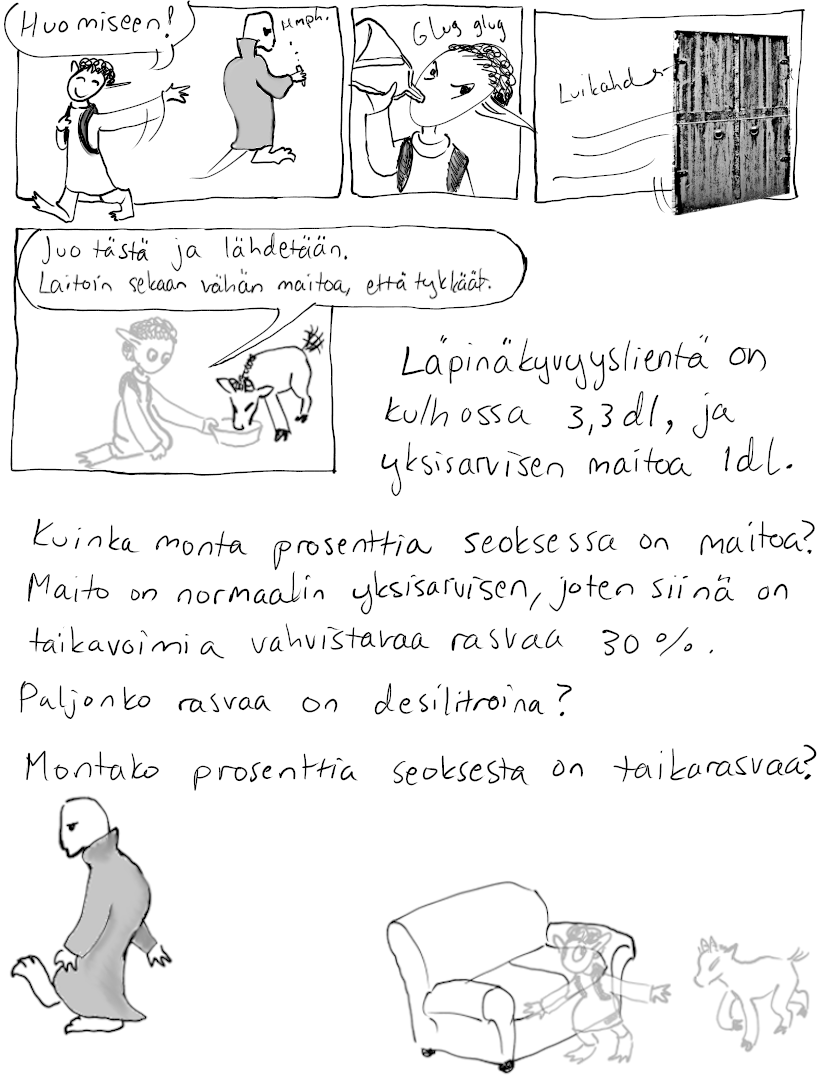 Huomiseen!
Hmph.
Glug glug
Luikahdus
Juo tästä ja lähdetään.
Laitoin sekaan vähän maitoa, että tykkäät.
Läpinäkyvyyslientä on
kulhossa 3,3 dl, ja
yksisarvisen maitoa 1 dl.
Kuinka monta prosenttia seoksessa on maitoa?
Maito on normaalin yksisarvisen, joten siinä on
taikavoimia vahvistavaa rasvaa 30 %.
Paljonko rasvaa on desilitroina?
Montako prosenttia seoksesta on taikarasvaa?